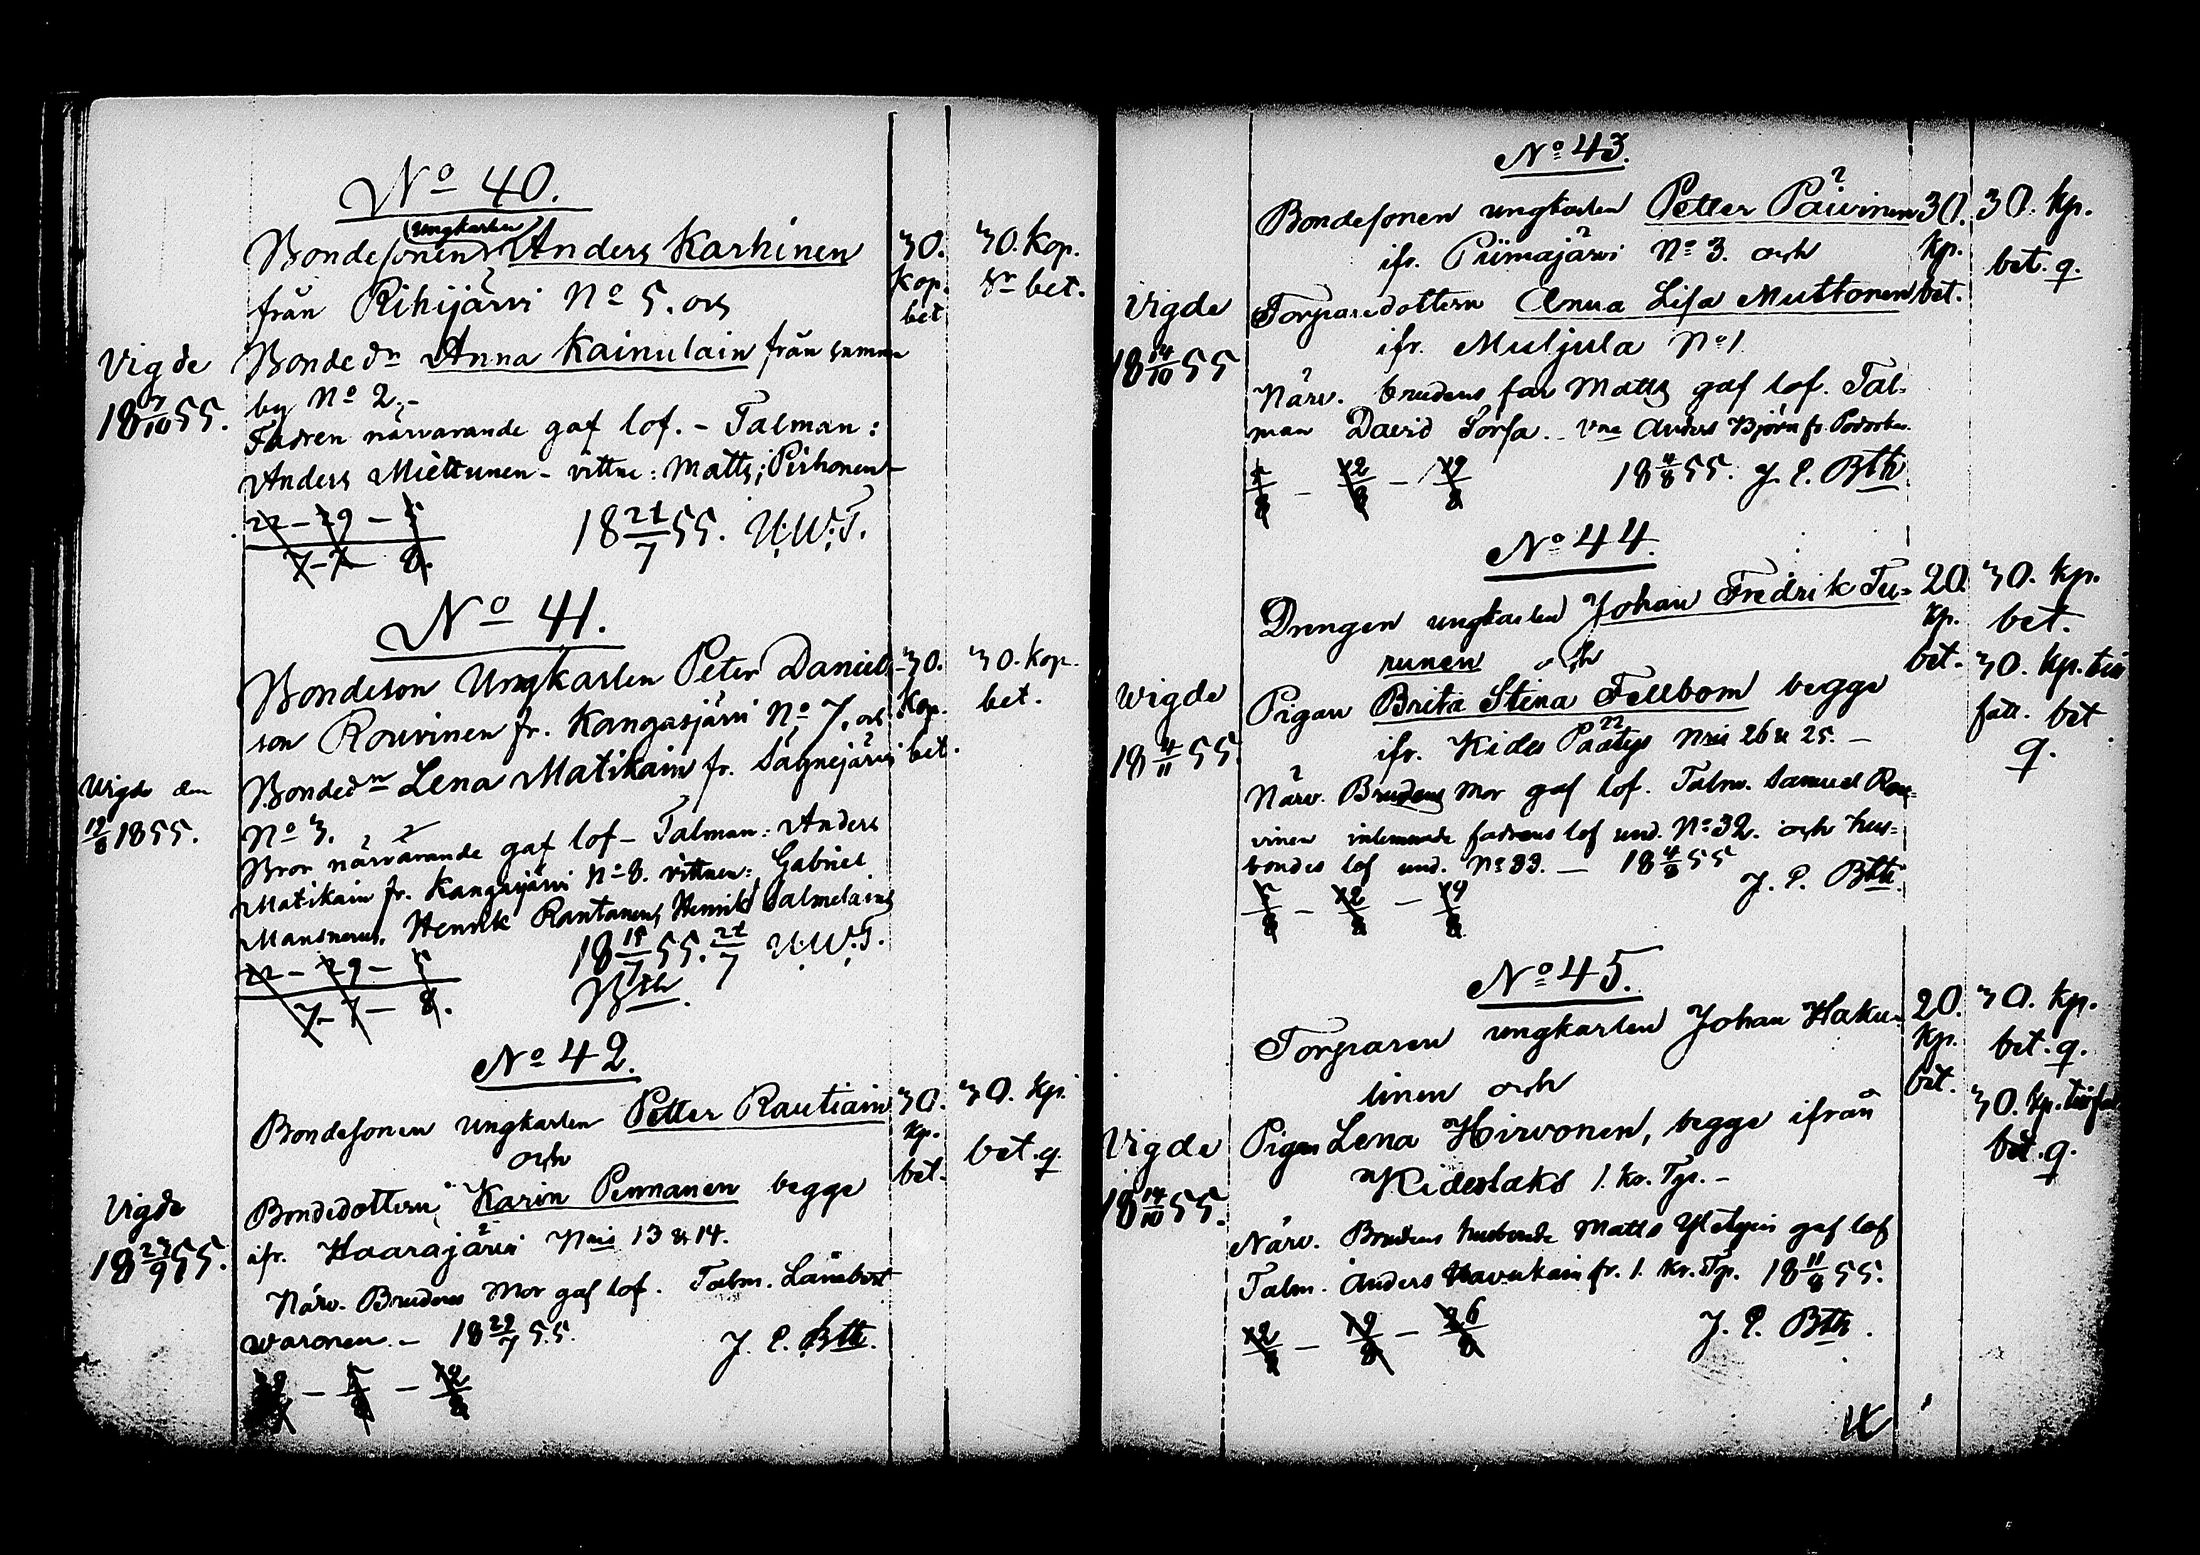 No 40.
ungkarlen
Bondesonen Anders Karhinen
från Rihijärvi No 5. och
Bonde dr Anna Kainulain från samma
by No 2.-
Fadren närvarande gaf lof. - Talman:
Anders Miettunen - vittne: Matts Pirhonen
22 - 29 - 5
7 - 7 - 8.
18 21/7 55. U.W.T.
Vigde
18 7/10 55.
30. kop. bet
30. kop. Sr bet.
No 41.
Bondeson Ungkarlen Peter Daniels
son Rouvinen fr. Kangasjärvi No 7. och
Bondedr Lena Matikain fr. Sägnejärvi
No 3.
Bror närvarande gaf lof - Talman: Anders
Matikain fr. Kangasjärvi No 8. vittnen: Gabriel
Mansnerus, Henrik Rantanens, Henrik Salmelains
22 - 29 - 5
7 - 7 - 8.
18 15/7 55. 21/7 U.W.T.
Bth.
Vigde den
19/8 1855.
30. Kop. bet.
30. Kop. bet.
No 42.
Bondesonen ungkarlen Petter Rautiain
och
Bondedottern Karin Pennanen begge
ifr. Haarajärvi Nris 13 & 14.
Närv. Brudens Mor gaf lof. Talm. Lambert
Waronen. - 18 29/7 55. J. P. Bth.
29/7 - 5/8 - 12/8
Vigde
18 23/9 55.
30. kp. bet.
30. kp. bet. q.
No 43.
Bondesonen ungkarlen Petter Päivinen
ifr. Piimajärvi No 3. och
Torparedottern Anna Lisa Muttonen
ifr. Muljula No 1.
Närv. brudens far Matts gaf lof. Tal-
man David Sorsa. Vne Anders Björn fr.
5/8 - 12/8 - 19/8 18 4/8 55. J. P. Bth.
Vigde
18 14/10 55
30. kp. bet.
30. kp. bet. q.
No 44.
Drengen ungkarlen Johan Fredrik Tu-
runen och
Pigan Brita Stina Fellbom begge
ifr. Kides Paatys Nris 26 & 25. -
Närv. Brudens Mor gaf lof. Talm. Samuel Rou-
vinen inlemnade fadrens lof und. No 32. och hus-
bondes lof und. No 33. - 18 4/8 55
J. P. Bth.
5/8 - 12/8 - 19/8
Wigde
18 4/11 55.
20. kp. bet.
30. kp. bet.
30. kp. till
fatt. bet
q.
No 45.
Torparen ungkarlen Johan Haku-
linen och
Pigan Lena Hirvonen, begge ifrån
Kideslaks 1. Kr. Tp. -
Närv. Brudens husbonde Matts gaf lof
Talm. Anders Havukain fr. 1. Kr. Tp. 18 11/8 55.
12/8 - 19/8 - 26/8 J. P. Bth.
Vigde
18 14/10 55.
20. kp. bet.
30. kp. bet. q.
30. kp. till fatt
bet. q.